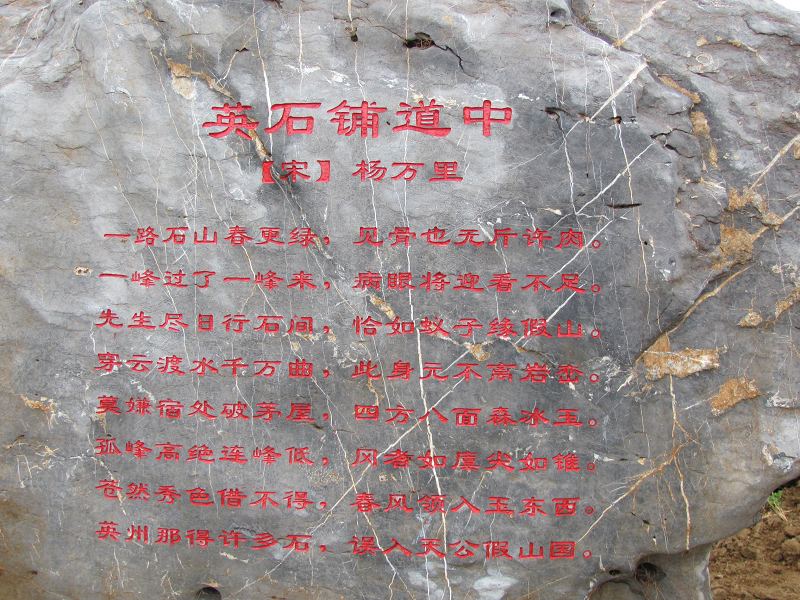 英石铺道中
【宋】杨万里
一路石山春更绿，见骨也无斤许肉。
一峰过了一峰来，病眼将迎看不足。
先生尽日行石间，恰如蚁子缘假山。
穿云渡水千万曲，此身元不离岩峦。
莫嫌宿处破茅屋，四方八面森冰玉。
孤峰高绝连峰低，冈者如廪尖如锥。
苍然秀色借不得，春风领入玉东西。
英州那得许多石，误入天公假山园。